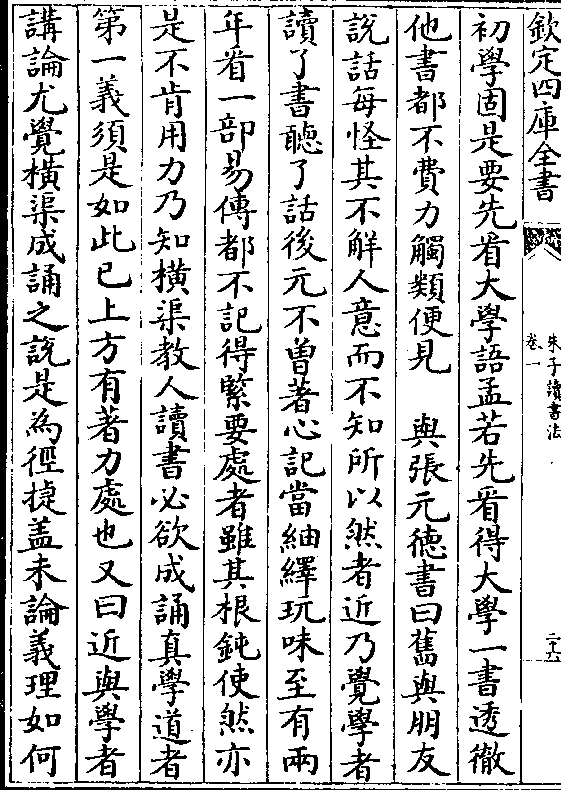 欽定四庫全書
朱子讀書法
卷一
二十六
初學固是要先看大學語孟若先看得大學一書透徹
他書都不費力觸類便見　與張元德書曰舊與朋友
說話每怪其不解人意而不知所以然者近乃覺學者
讀了書聽了話後元不曽著心記當紬繹玩味至有兩
年看一部易傳都不記得緊要處者雖其根鈍使然亦
是不肯用力乃知橫渠教人讀書必欲成誦真學道者
第一義須是如此已上方有著力處也又曰近與學者
講論尤覺橫渠成誦之說是為徑捷盖未論義理如何